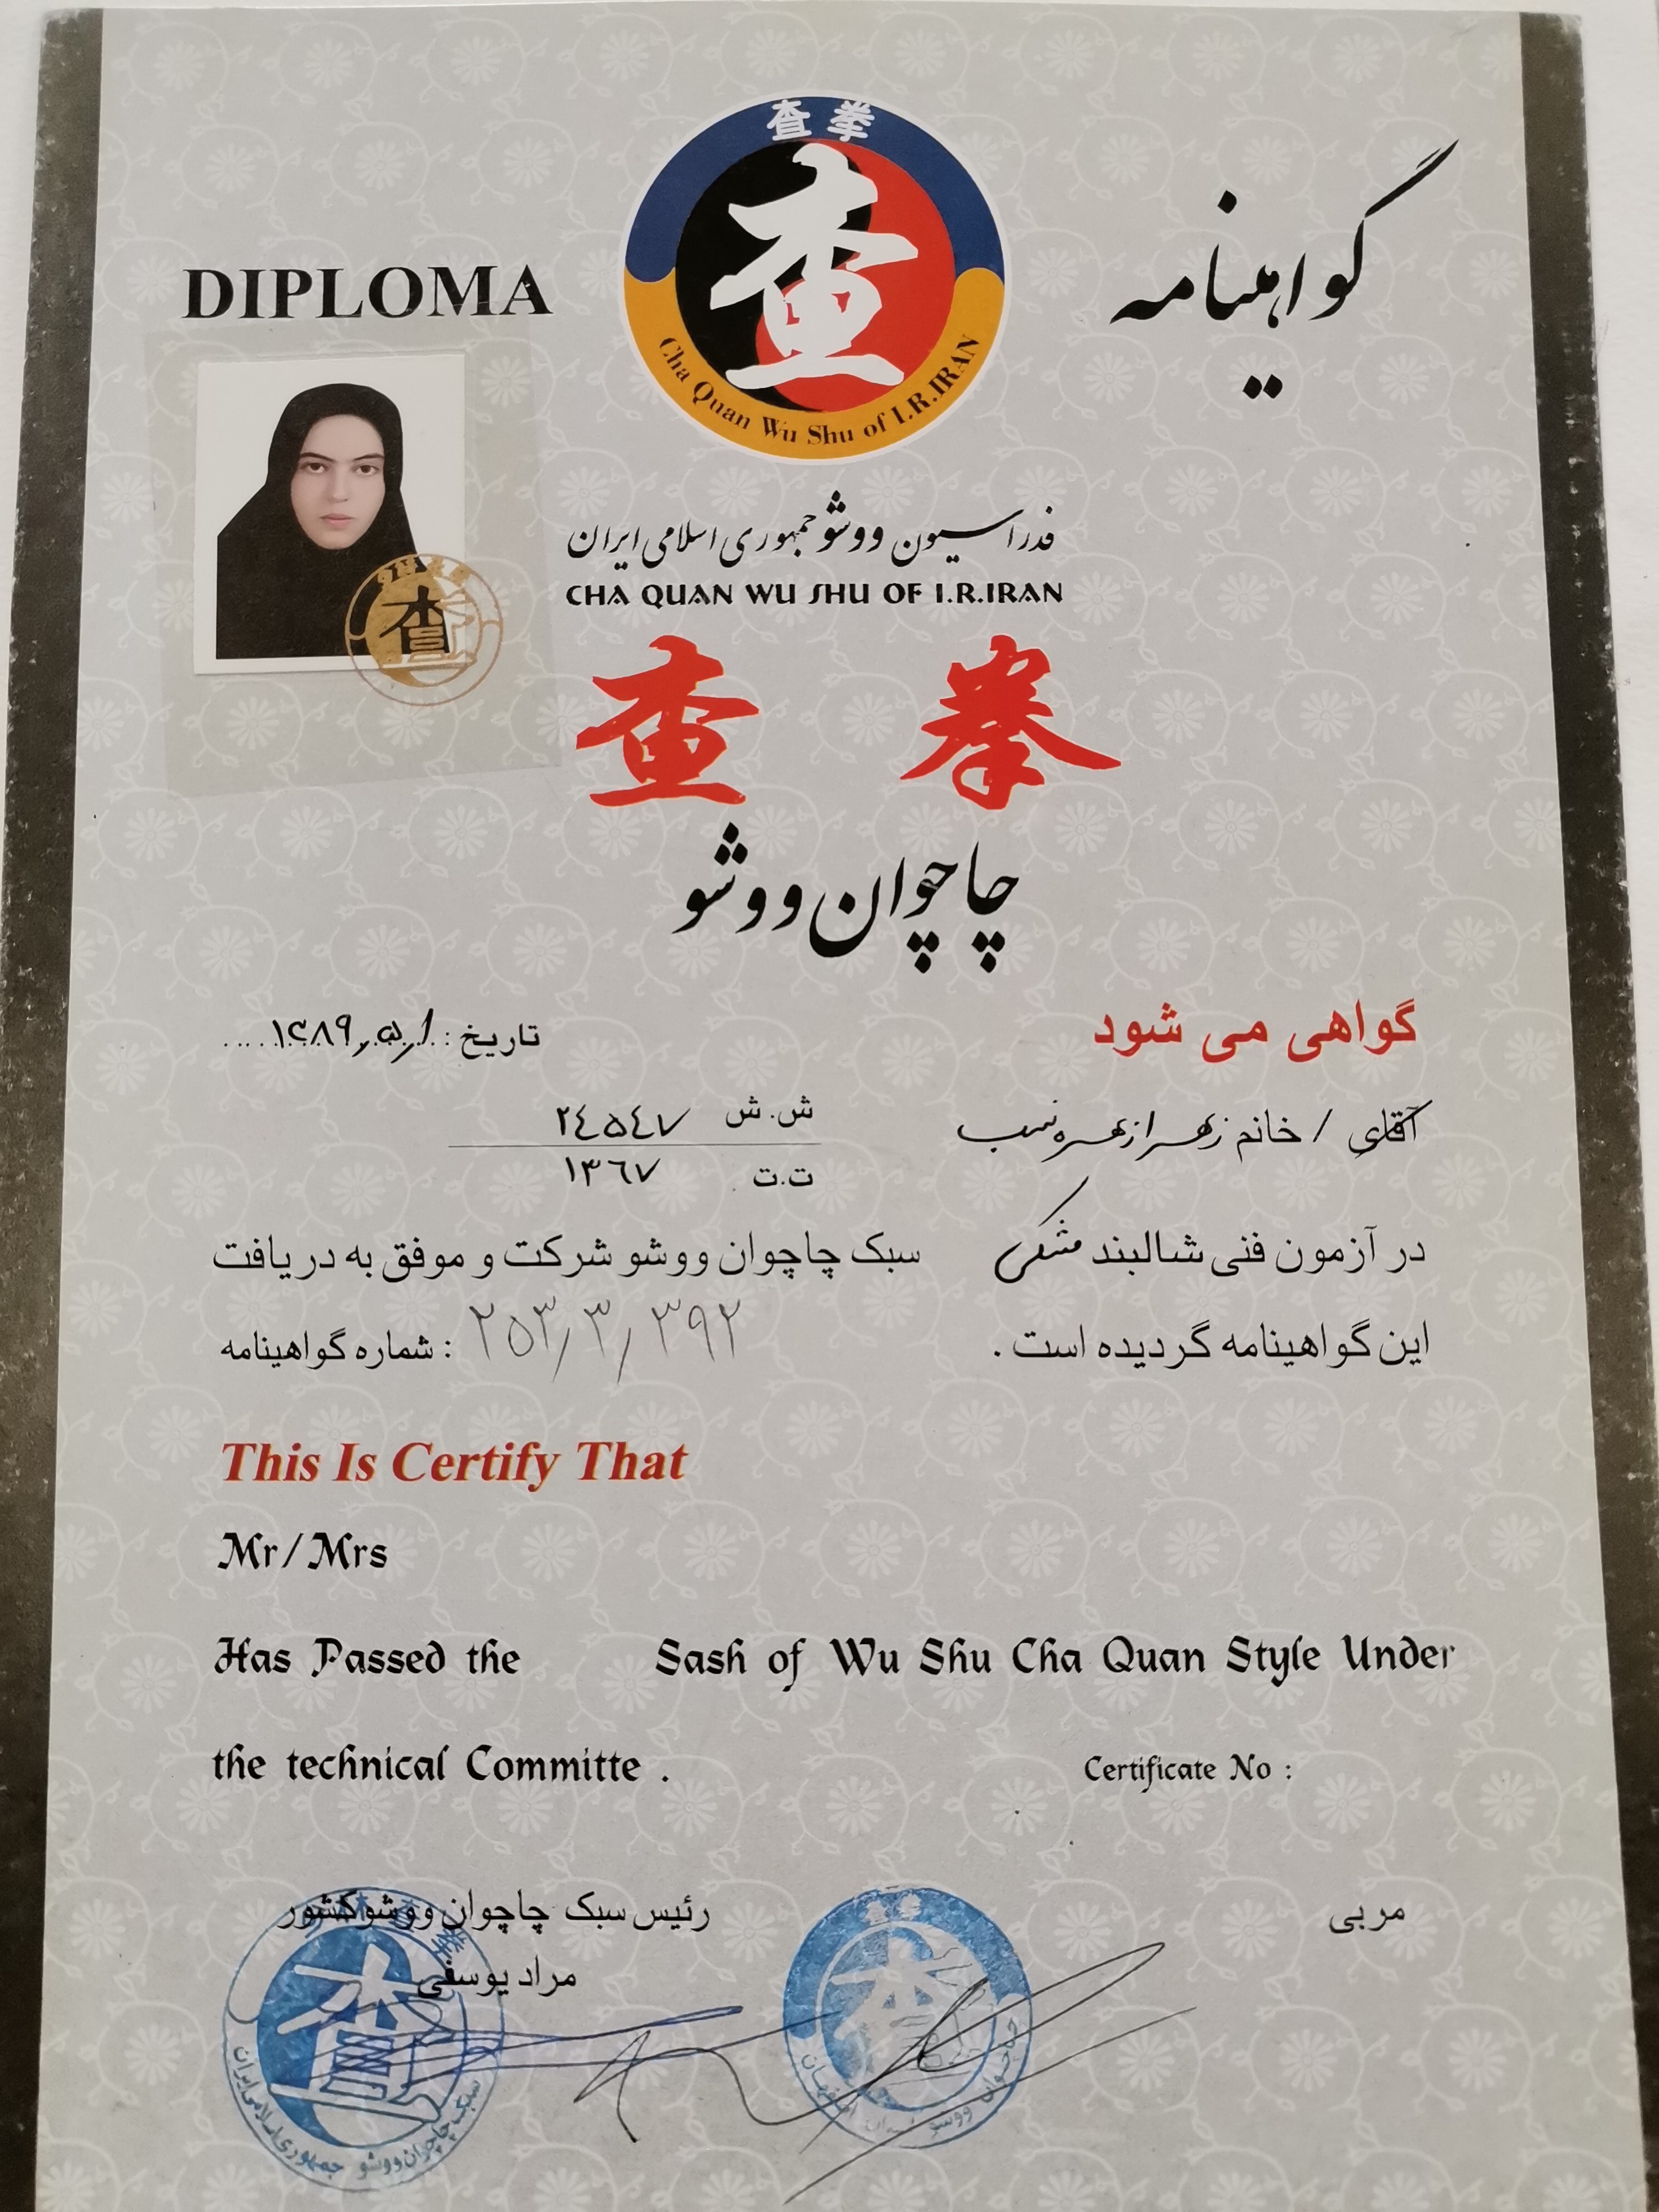 查 拳
查
Cha Quan Wu Shu of I.R.IRAN
DIPLOMA
گواهینامه
فدراسیون ووشو جمهوری اسلامی ایران
CHA QUAN WU SHU OF I.R.IRAN
查 拳
چاچوان ووشو
گواهی می شود
تاریخ : ۱۳۸۹,۵,۱
آقای / خانم زهرا زهره نسب
ش.ش ۲۴۵۴۷
ت.ت ۱۳۶۷
در آزمون فنی شالبند مشکی سبک چاچوان ووشو شرکت و موفق به دریافت
این گواهینامه گردیده است .
شماره گواهینامه : ۲۵۳/۳/۳۹۲
This Is Certify That
Mr/Mrs
Has Passed the Sash of Wu Shu Cha Quan Style Under
the technical Committe .
Certificate No :
مربی
رئیس سبک چاچوان ووشو کشور
مراد یوسفی
سبک چاچوان ووشو جمهوری اسلامی ایران